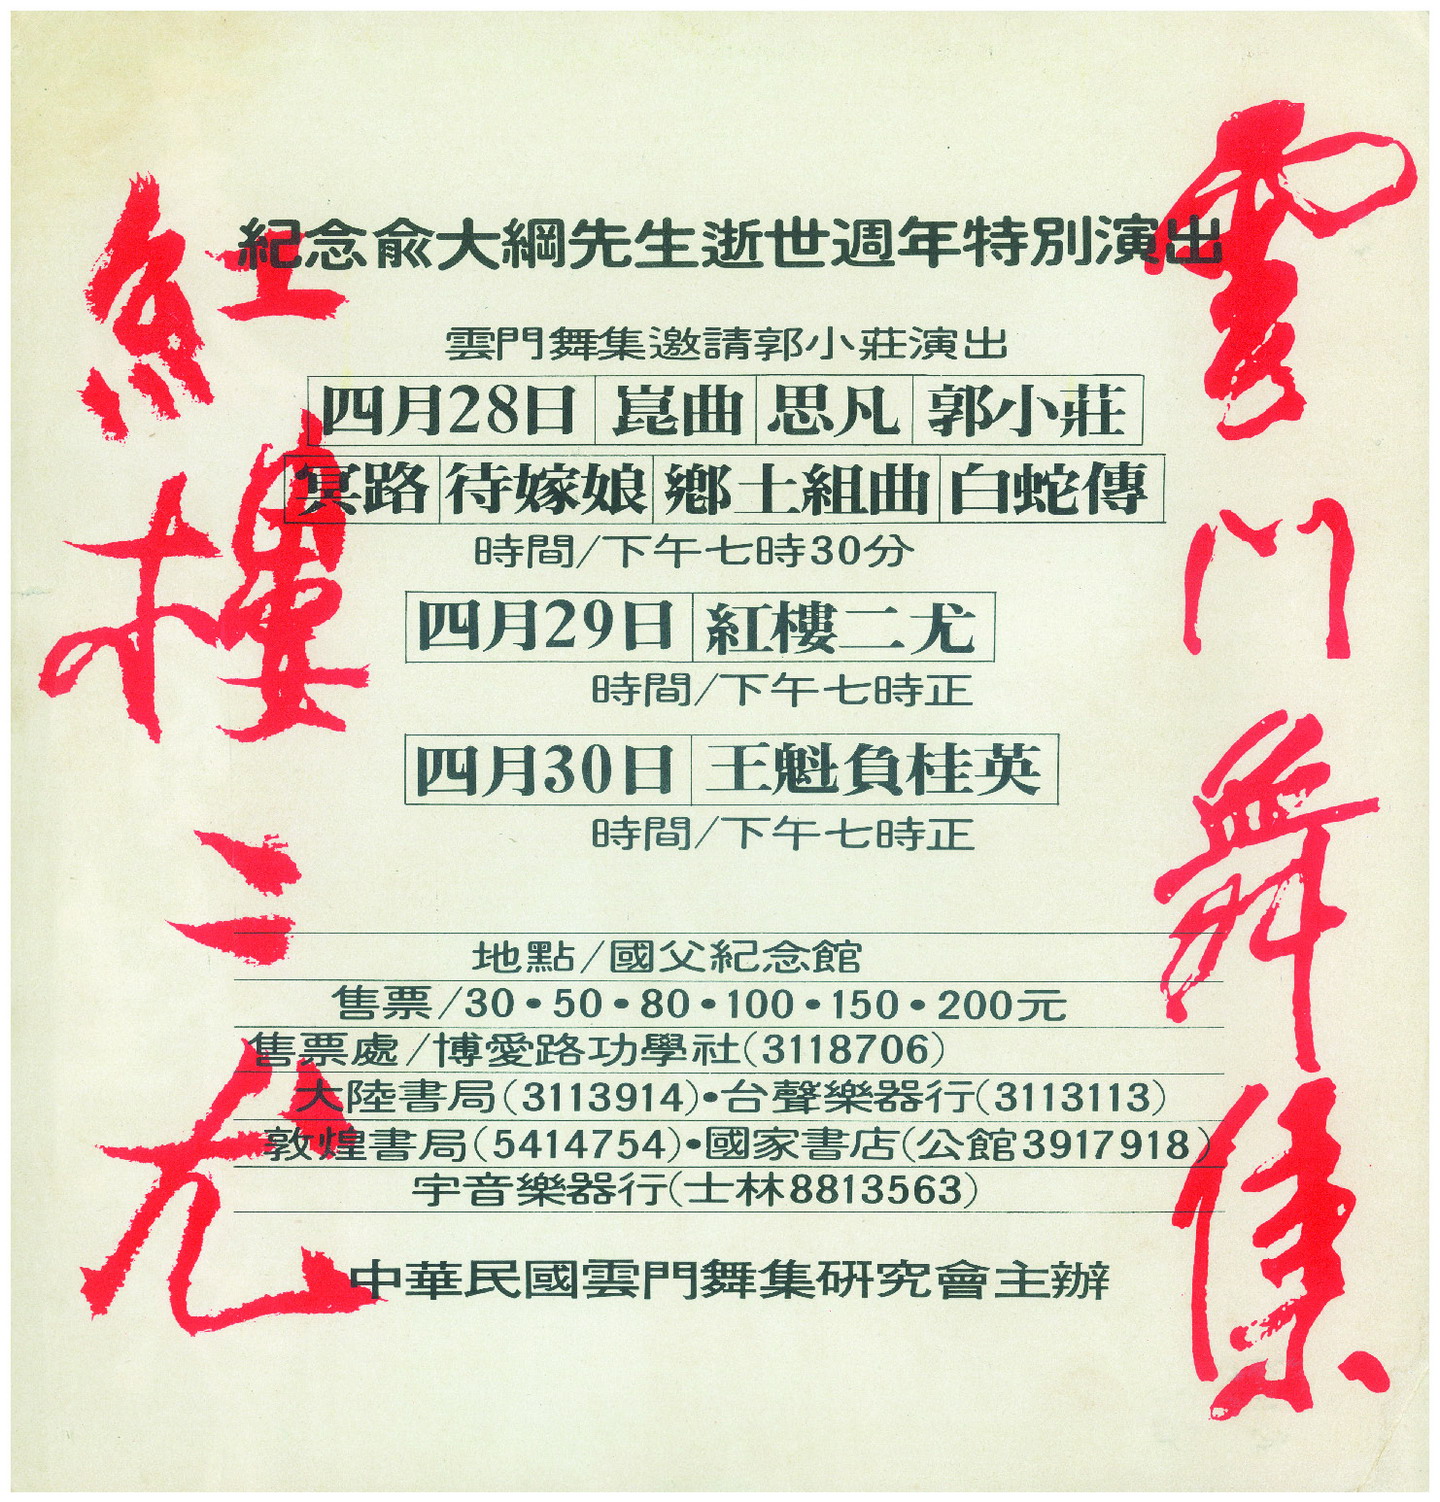 雲門舞集
紅樓二尤
紀念俞大綱先生逝世週年特別演出
雲門舞集邀請郭小莊演出
四月28日 崑曲 思凡 郭小莊
冥路 待嫁娘 鄉土組曲 白蛇傳
時間/下午七時30分
四月29日 紅樓二尤
時間/下午七時正
四月30日 王魁負桂英
時間/下午七時正
地點/國父紀念館
售票/30•50•80•100•150•200元
售票處/博愛路功學社(3118706)
大陸書局(3113914)•台聲樂器行(3113113)
敦煌書局(5414754)•國家書店(公館3917918)
宇音樂器行(士林8813563)
中華民國雲門舞集研究會主辦